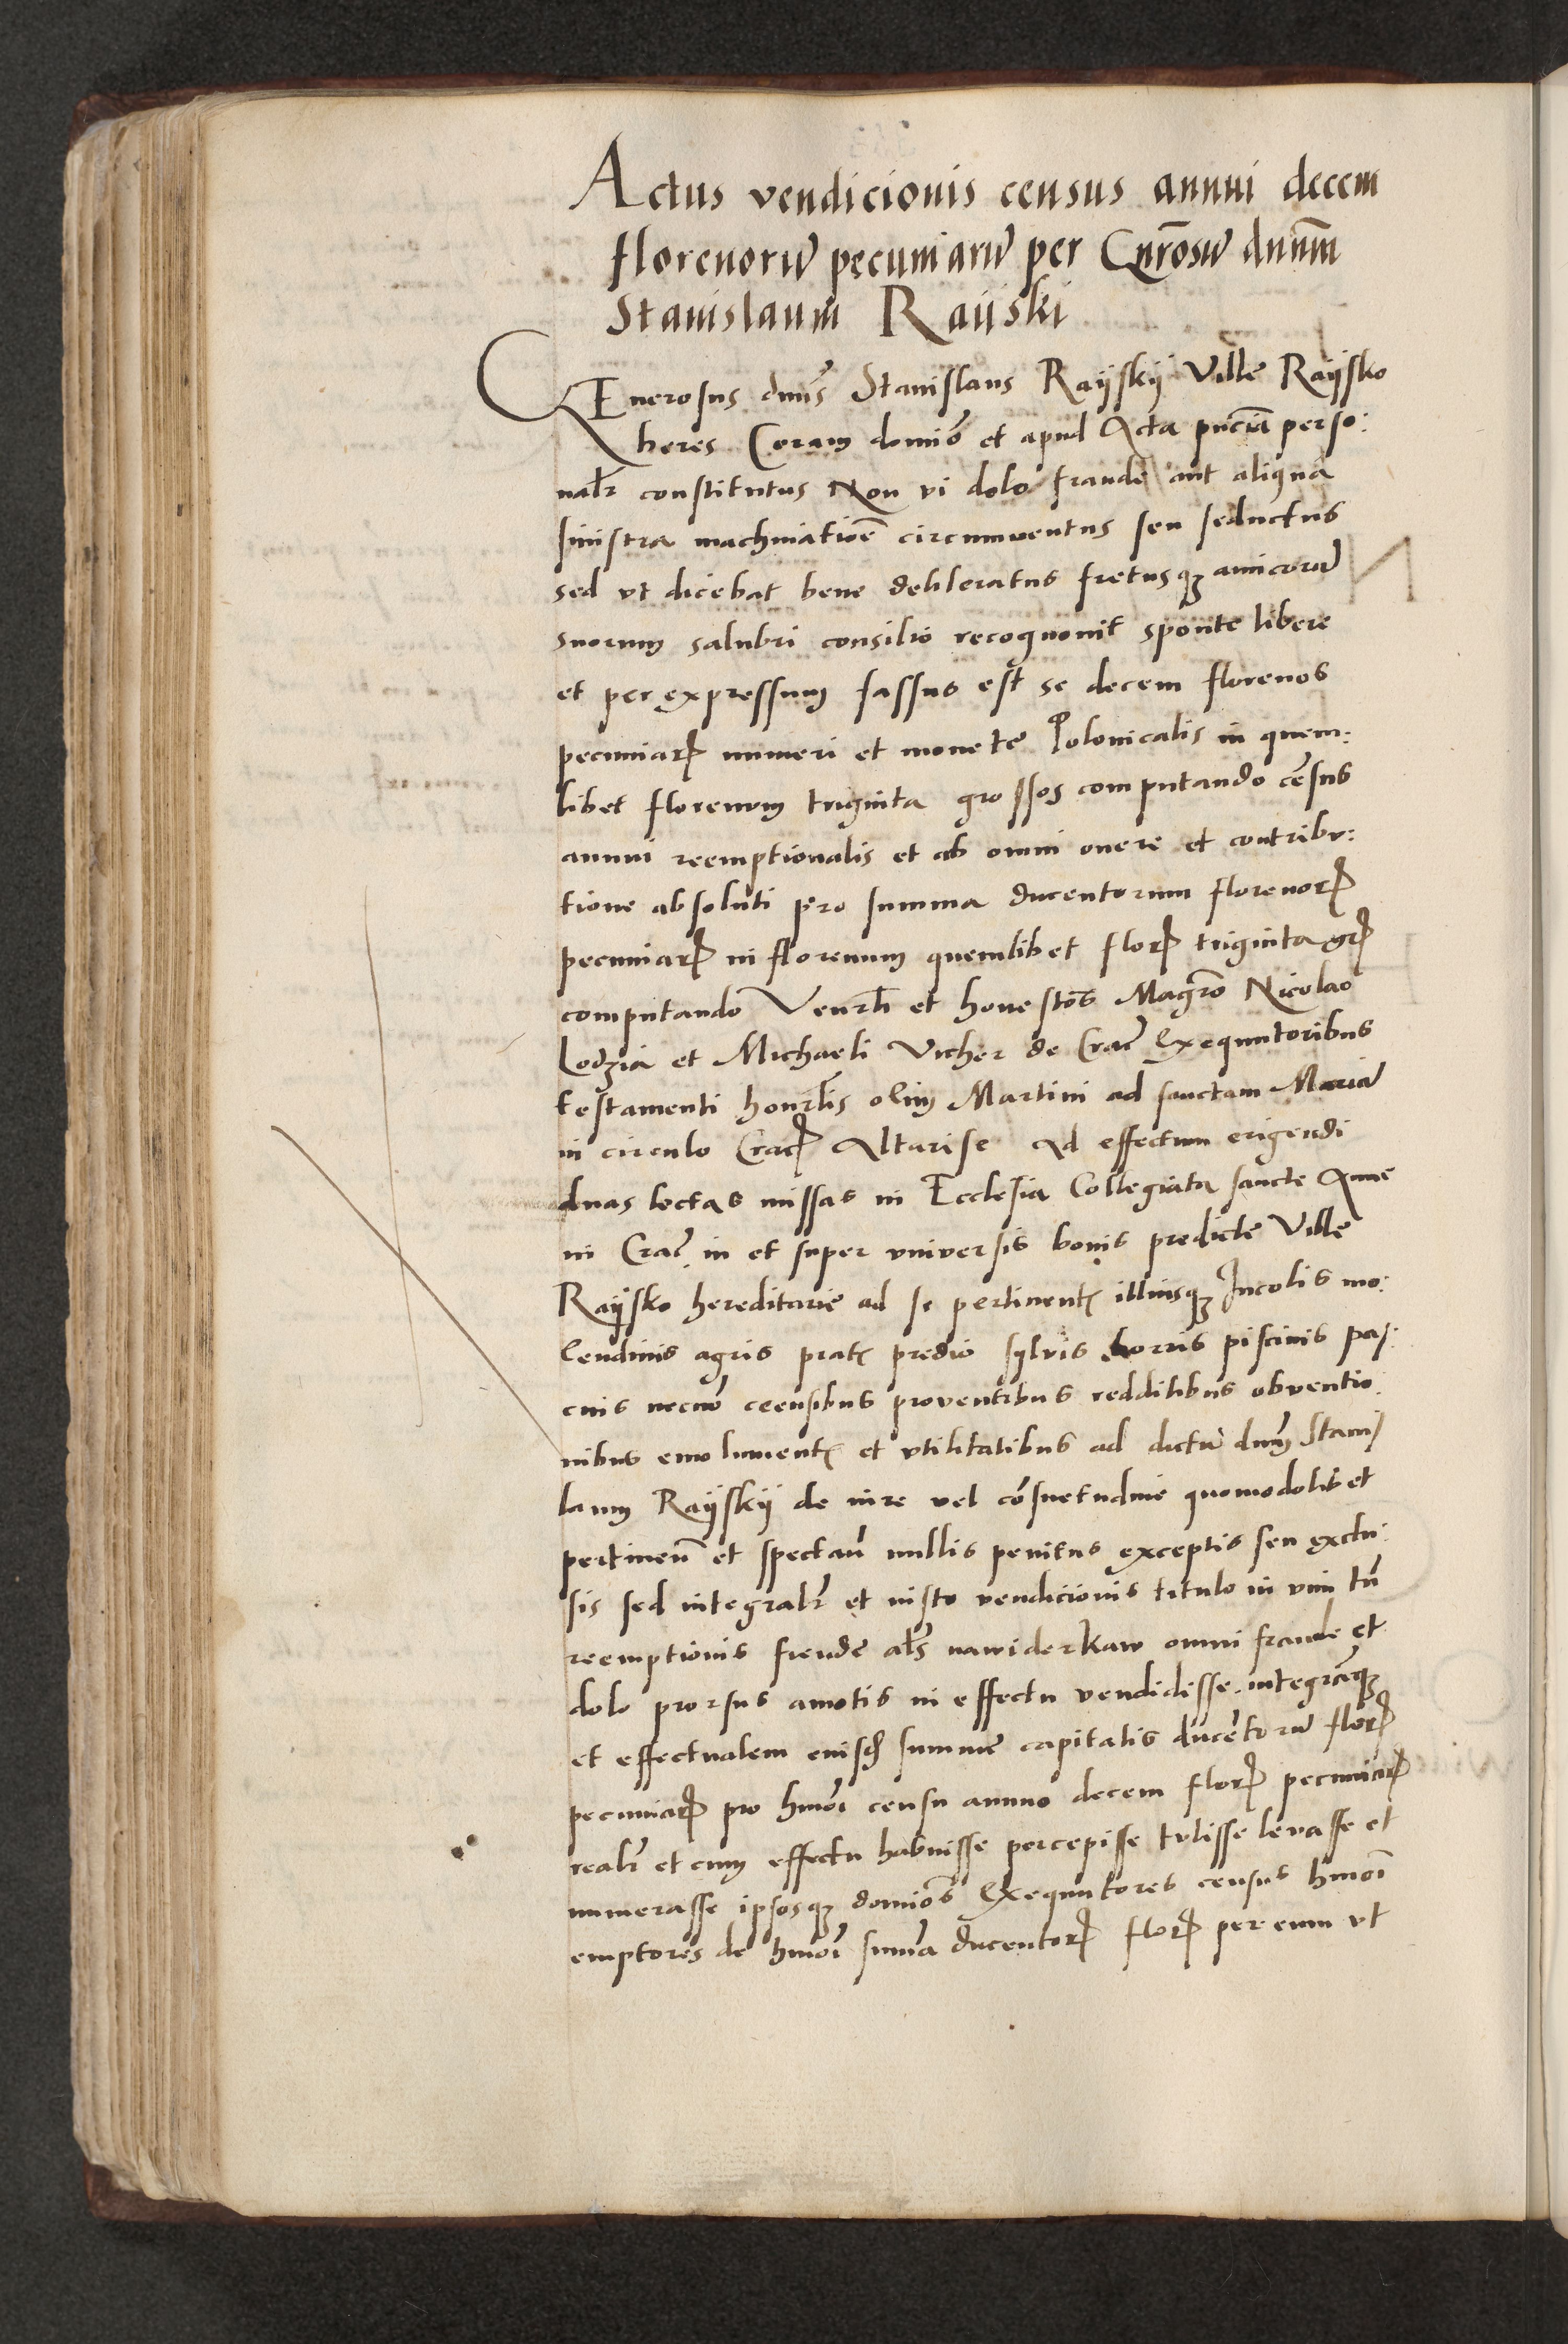 Actus vendicionis census annui decem
florenorū pecuniarū per Gn̄rosū dnūm
Stanislaum Raijski
GEnerosus dnūs Stanislaus Raijskij Ville Raijsko
heres Coram domiō et apud Acta pn̄cia perso:
nalr̄ constitutus Non vi dolo fraude aut aliqua
sinistra machinatiōe circumventus seu seductus
sed vt dicebat bene deliberatus fretusqȝ amicorū
suorum salubri consilio recognouit sponte libere
et per expressum fassus est se decem florenos
pecuniarꝝ numeri et monete Polonicalis in quem:
libet florenum triginta grossos computando cēsus
annui reemptionalis et ab omni onere et contribu:
tione absoluti pro summa ducentorum florenorꝝ
pecuniarꝝ in florenum quemlibet florꝝ triginta grꝝ
computando Venrlī et honestōs Magrō Nicolao
Lodzia et Michaeli Vicher de Crac̄ Exequutoribus
testamenti honrlīs olim Martini ad sanctam Mariā
in circulo Cracꝝ Altarise ad effectum erigendi
duas lectas missas in Ecclesia Collegiata sancte Anne
in Crac̄ in et super vniversis bonis predicte Ville
Raijsko hereditarie ad se pertinentꝭ illiusqȝ Incolis mo:
lendinis agris pratꝭ predio sylvis borris piscinis pas:
cuis necnō ceensibus proventibus redditibus obventio:
nibus emolumentꝭ et vtilitatibus ad dictū dnūm Stanis
laum Raijskij de iure vel cōsuetudine quomodolibet
pertineñ et spectañ nullis penitus exceptis seu exclu:
sis sed integralr̄ et iusto vendicionis titulo in vim tn̄
reemptionis fiende als̄ nawiderkaw omni fraude et
dolo prorsus amotis in effectu vendidisse integrāqȝ
et effectualem eiusꝱ summe capitalis ducētorū florꝝ
pecuniarꝝ pro hmōi censu annuo decem florꝝ pecuniarꝝ
realr̄ et cum effectu habuisse percepisse tulisse levasse et
numerasse ipsosqȝ domiōs Exequutores census hmōi
emptores de hmōi summa ducentorꝝ florꝝ per eum vt